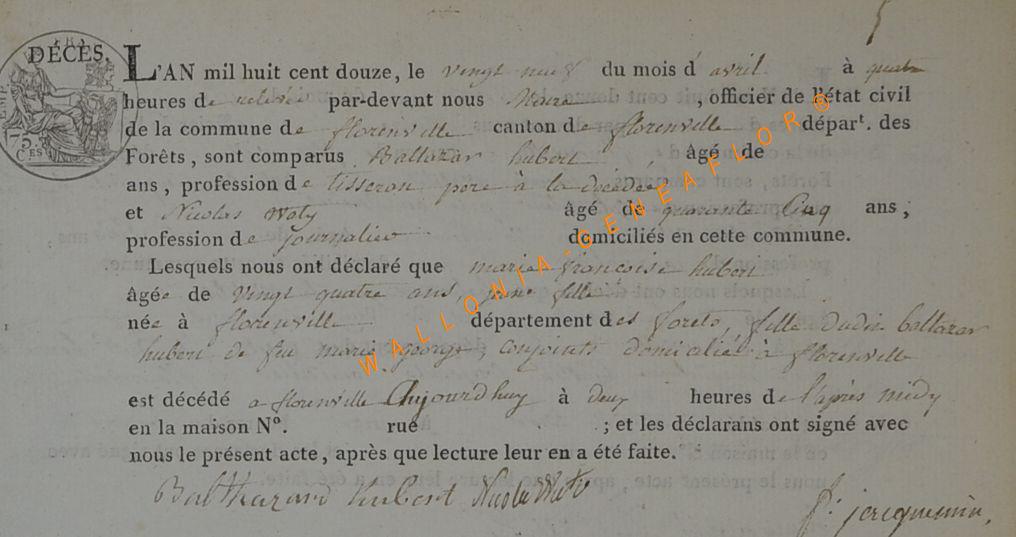 5
DÉCÈS. L'AN mil huit cent douze, le vingt neuf du mois d'avril à quatre
heures de relevée par-devant nous Maire, officier de l'état civil
de la commune de florenville canton de florenville dépar<sup>t</sup>. des
Forêts, sont comparus Baltazar hubert, âgé de
ans, profession de tisseron pere à la décédée
et Nicolas Woty âgé de quarante Cinq ans;
profession de journalier domiciliés en cette commune.
Lesquels nous ont déclaré que marie françoise hubert
âgée de vingt quatre ans, jeune fille
née à florenville département des forets, fille dudit baltazar
hubert de feu marie george, conjoints domicilié à florenville
est décédé a florenville Aujourdhuy à deux heures de l'après midy
en la maison N°. rue ; et les déclarans ont signé avec
nous le présent acte, après que lecture leur en a été faite.
Balthazard hubert
J. jacquemin
WALLONIA-GENEAFLOR®